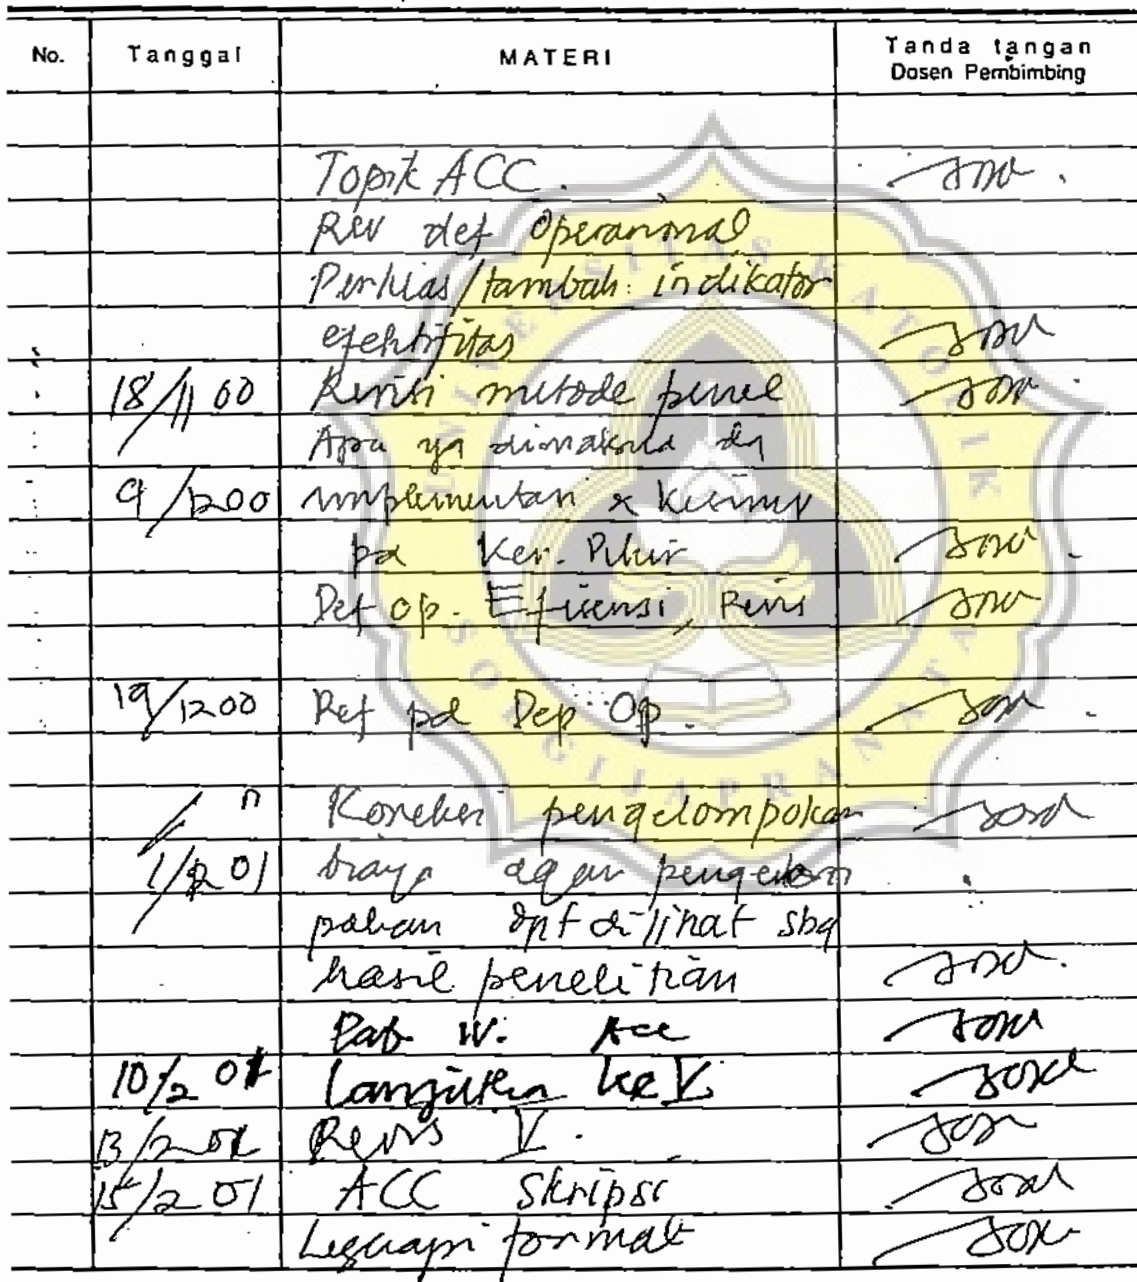 No. Tanggal MATERI Tanda tangan
Dosen Pembimbing
UNIVERSITAS KATOLIK
SOEGIJAPRANATA
Topik ACC.
Rev def operasional
Perluas/tambah indikator
efektifitas
18/11 00 Revisi metode penel
Apa yg dimaksud dg
9/12 00 implementasi
pd
Def op. Efisiensi, Revisi
19/12 00 Ref pd Dep Op.
Koreksi pengelompokan
biaya agar pengelom
pokan dpt dilihat sbg
hasil penelitian
Bab IV. Acc
10/2 01 Lanjutkan ke V
13/2 01 Revisi V.
15/2 01 ACC Skripsi
Lengkapi format